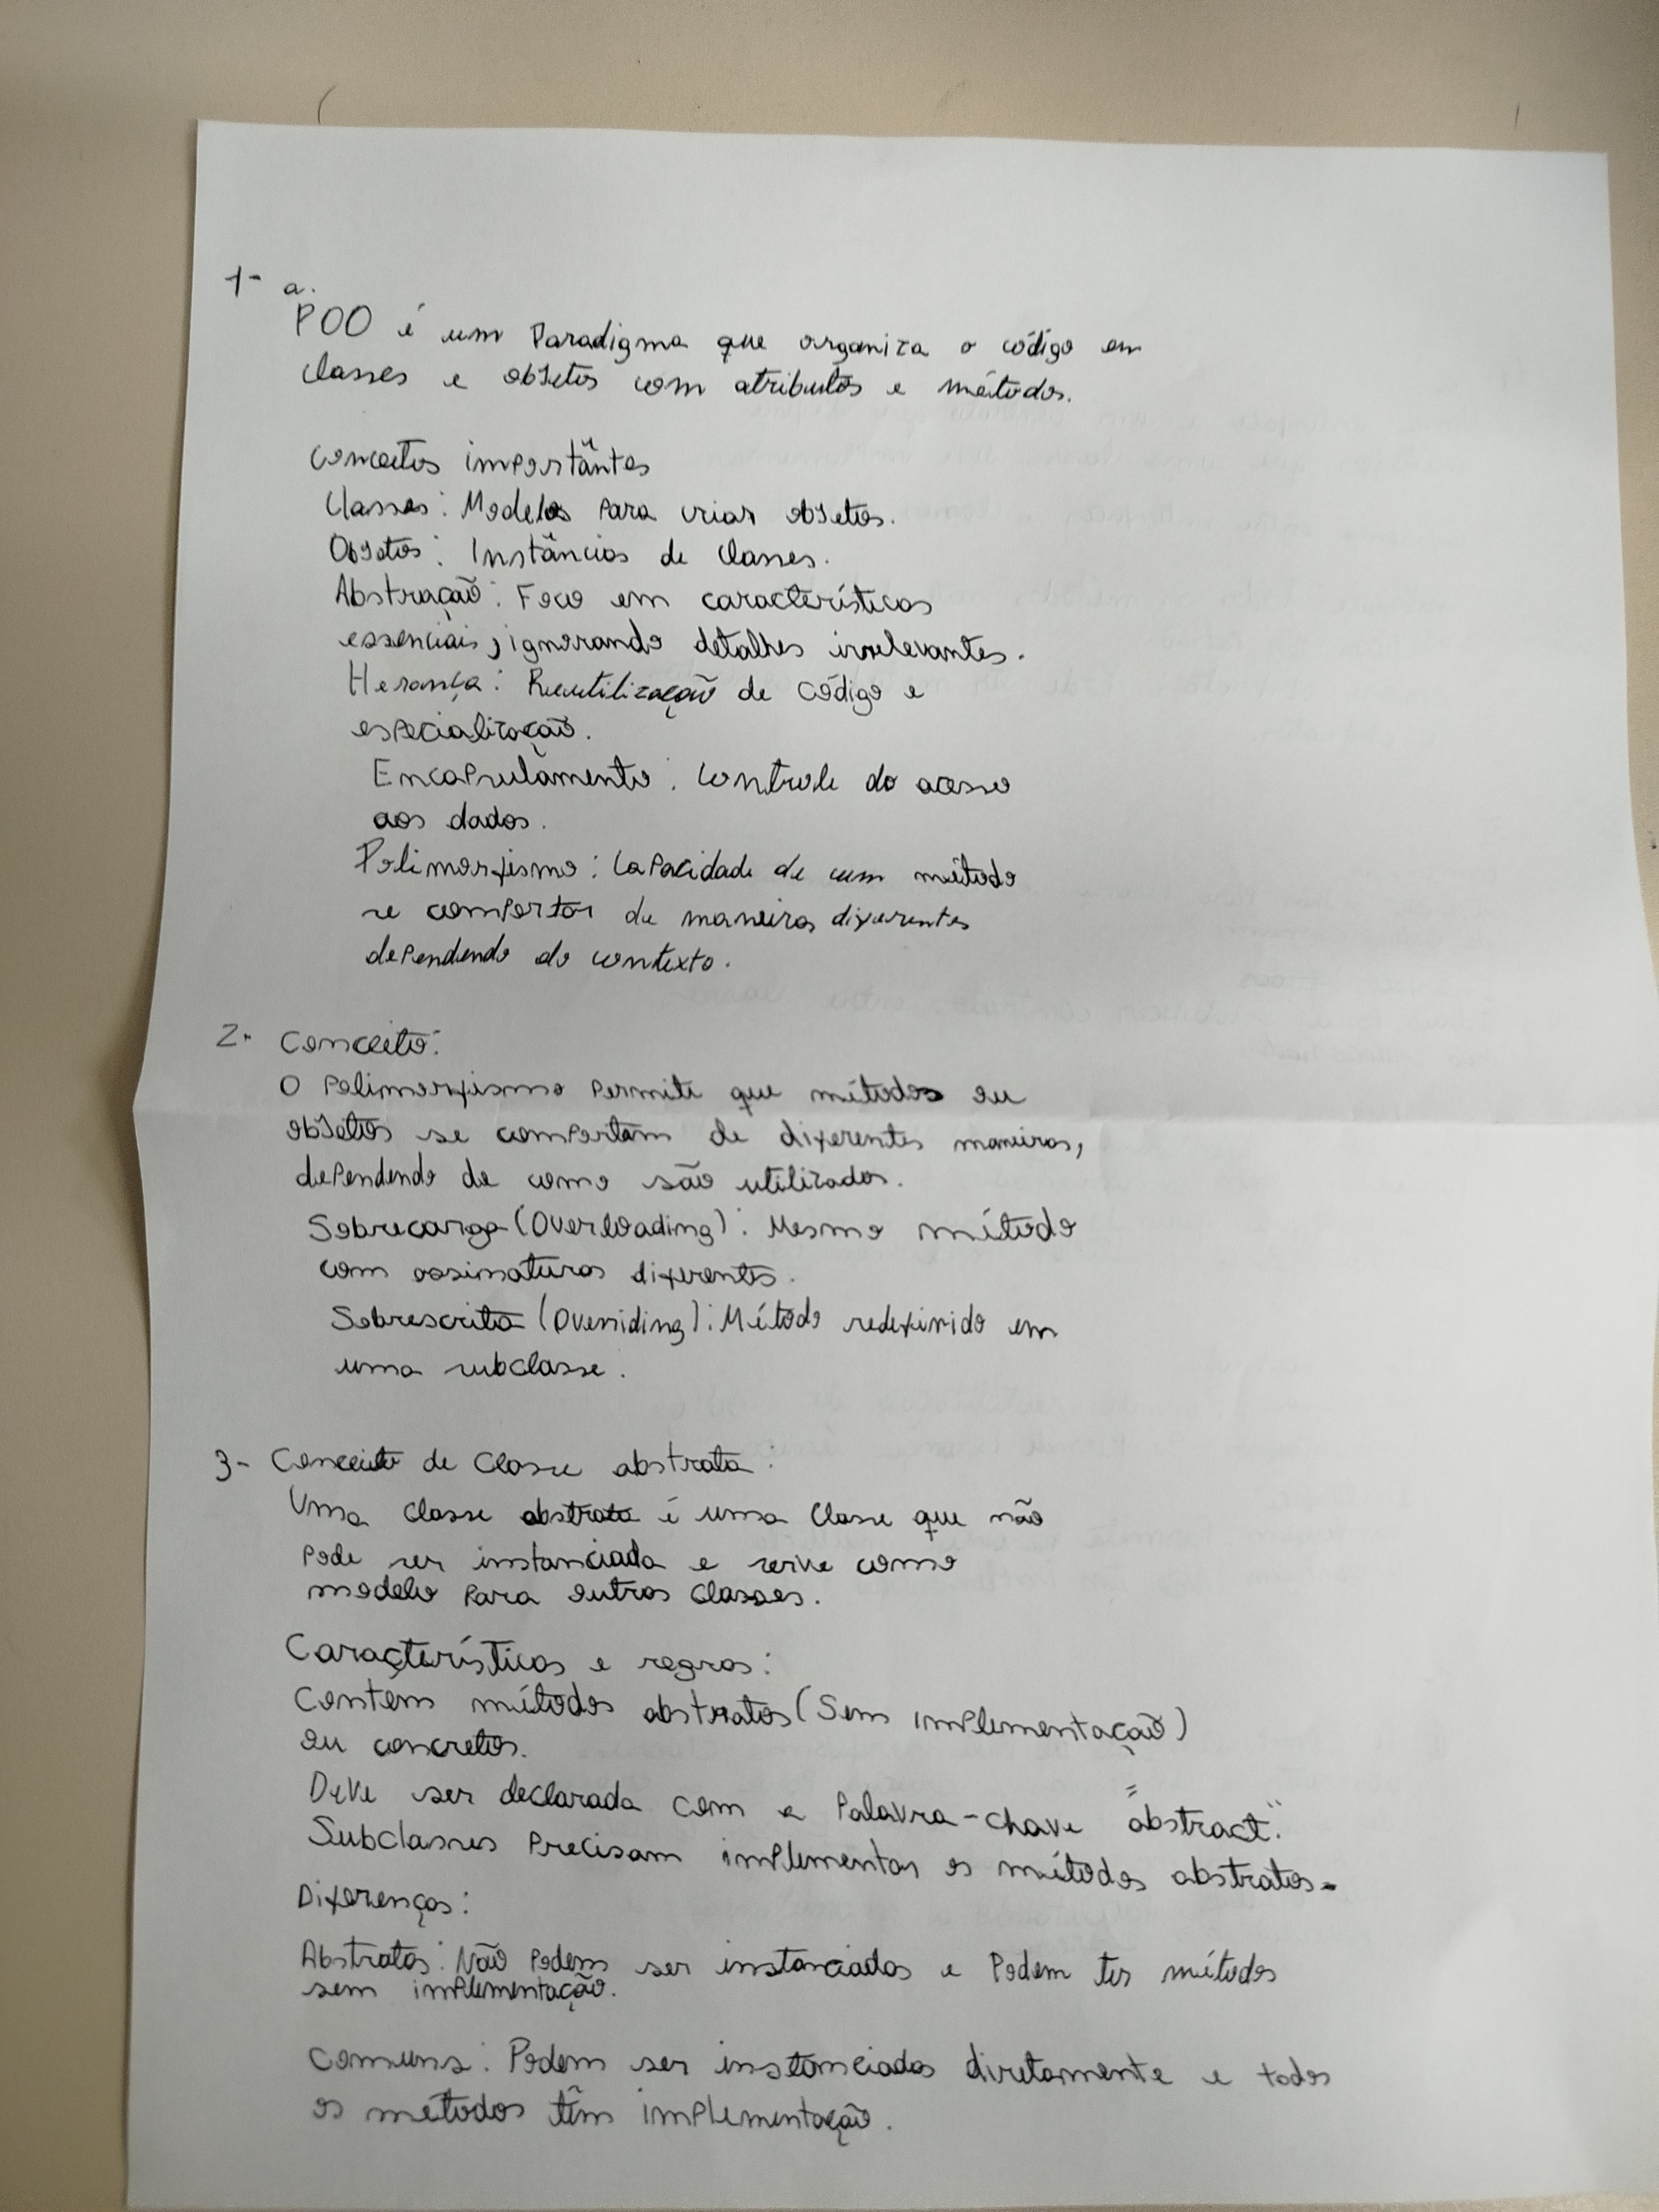 1- a.
POO é um Paradigma que organiza o código em
classes e objetos com atributos e métodos.
conceitos importântes
Classes: Modelos Para criar objetos.
Objetos: Instâncias de classes.
Abstração: Foco em características
essenciais, ignorando detalhes irrelevantes.
Herança: Reutilização de código e
especialização.
Encapsulamento: Controle do acesso
aos dados.
Polimorfismo: Capacidade de um método
se comportar de maneiras diferentes
dependendo do contexto.
2- Conceito:
O Polimorfismo Permite que métodos ou
objetos se comportam de diferentes maneiras,
dependendo de como são utilizados.
Sobrecarga (Overloading): Mesmo método
com assinaturas diferentes.
Sobrescrita (Overriding): Método redefinido em
uma subclasse.
3- Conceito de Classe abstrata:
Uma Classe abstrata é uma Classe que não
Pode ser instanciada e serve como
modelo Para outras classes.
Características e regras:
Contem métodos abstratos (Sem implementação)
ou concretos.
Deve ser declarada com a Palavra-chave "abstract".
Subclasses Precisam implementar os métodos abstratos.
Diferenças:
Abstratas: Não Podem ser instanciadas e Podem ter métodos
sem implementação.
Comuns: Podem ser instanciadas diretamente e todos
os métodos têm implementação.